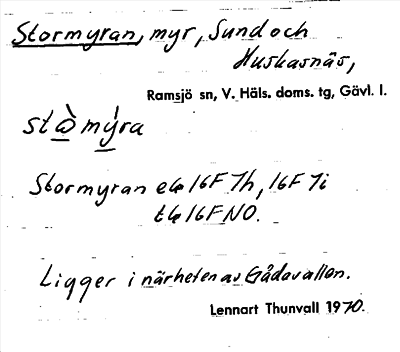 Stormyran, myr, Sund och
Huskasnäs,
Ramsjö sn, V. Häls. doms. tg, Gävl. l.
stòmýra
Stormyran ek 16F 7h, 16F 7i
tk 16F NO.
Ligger i närheten av Gådavallen.
Lennart Thunvall 1970.